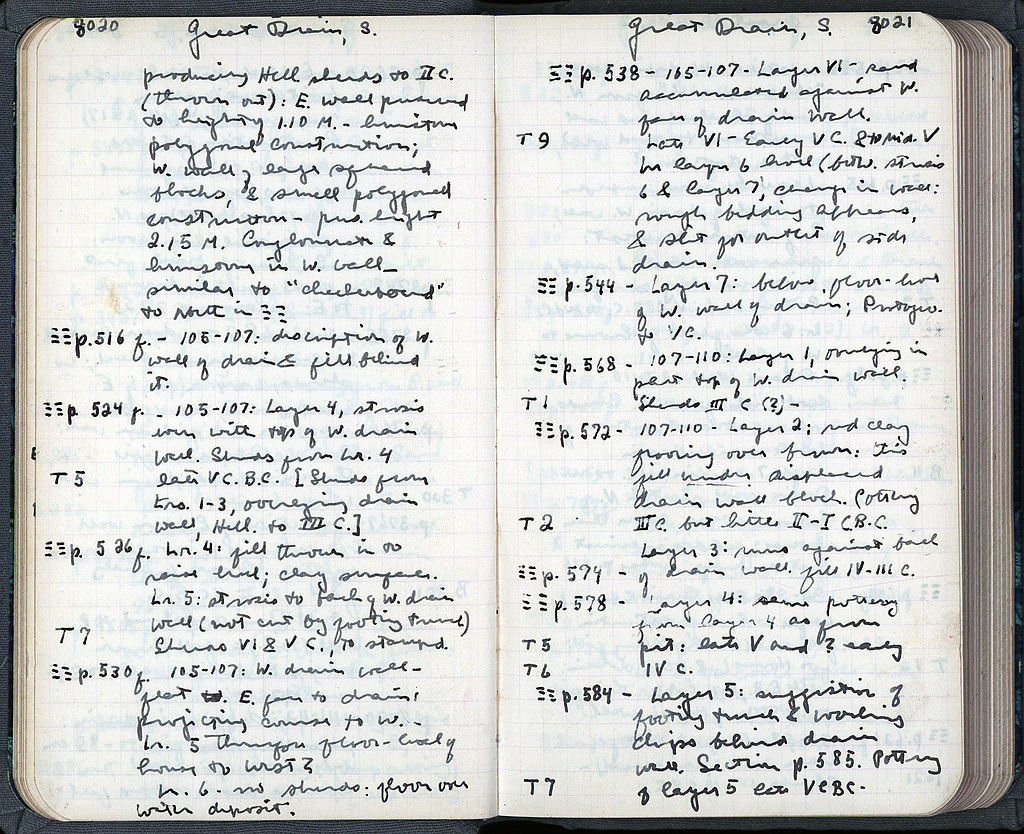 8020 Great Drain, S.
producing Hell. sherds to II c.
(thrown out): E. wall preserved
to height of 1.10 M. - limestone
polygonal construction;
W. wall of large squared
blocks, & small polygonal
construction - pres. height
2.15 M. Conglomerate &
limestone in W. wall -
similar to "checkerboard"
to North in ΞΞ
ΞΞ p. 516 f. - 105-107: description of W.
wall of drain & fill behind
it.
ΞΞ p. 524 f. - 105-107: Layer 4, strosis
even with top of W. drain
wall. Sherds from Lr. 4
T 5 late V C. B.C. [Sherds from
Lrs. 1-3, overlying drain
wall, Hell. to III C.]
ΞΞ p. 526 f. Lr. 4: fill thrown in to
raise level; clay surfaces.
Lr. 5: strosis to back of W. drain
wall (not cut by footing trench)
T 7 Sherds VI & V C., to stamped.
ΞΞ p. 530 f. 105-107: W. drain wall -
flat E. face to drain;
projecting course to W. -
Lr. 5 therefore floor-level of
house to West?
Lr. 6 - no sherds: floor over
water deposit.
Great Drain, S. 8021
ΞΞ p. 538 - 105-107 - Layer VI -, sand
accumulated against W.
face of drain wall.
T 9 Late VI - Early V C. & to Mid. V
In layer 6 level (betw. strosis
6 & layer 7, change in wall:
rough bedding appears,
& slit for outlet of side
drain.
ΞΞ p. 544 - Layer 7: below floor-level
of W. wall of drain; Protogeo.
to VC.
ΞΞ p. 568 - 107-110: Layer 1, overlying in
part top of W. drain wall.
T 1 Sherds III C (?) -
ΞΞ p. 572 - 107-110 - Layer 2; red clay
flooring over brown: this
fill under displaced
drain wall block. Pottery
T 2 III C, but little II-I C B.C.
Layer 3: runs against back
ΞΞ p. 574 - of drain wall fill IV-III C.
ΞΞ p. 578 - Layer 4: same pottery
from layer 4 as from
T 5 pit: late V and ? early
T 6 IV C.
ΞΞ p. 584 - Layer 5: suggestion of
footing trench & working
chips behind drain
wall. Section p. 585. Pottery
T 7 of layer 5 late V C BC.